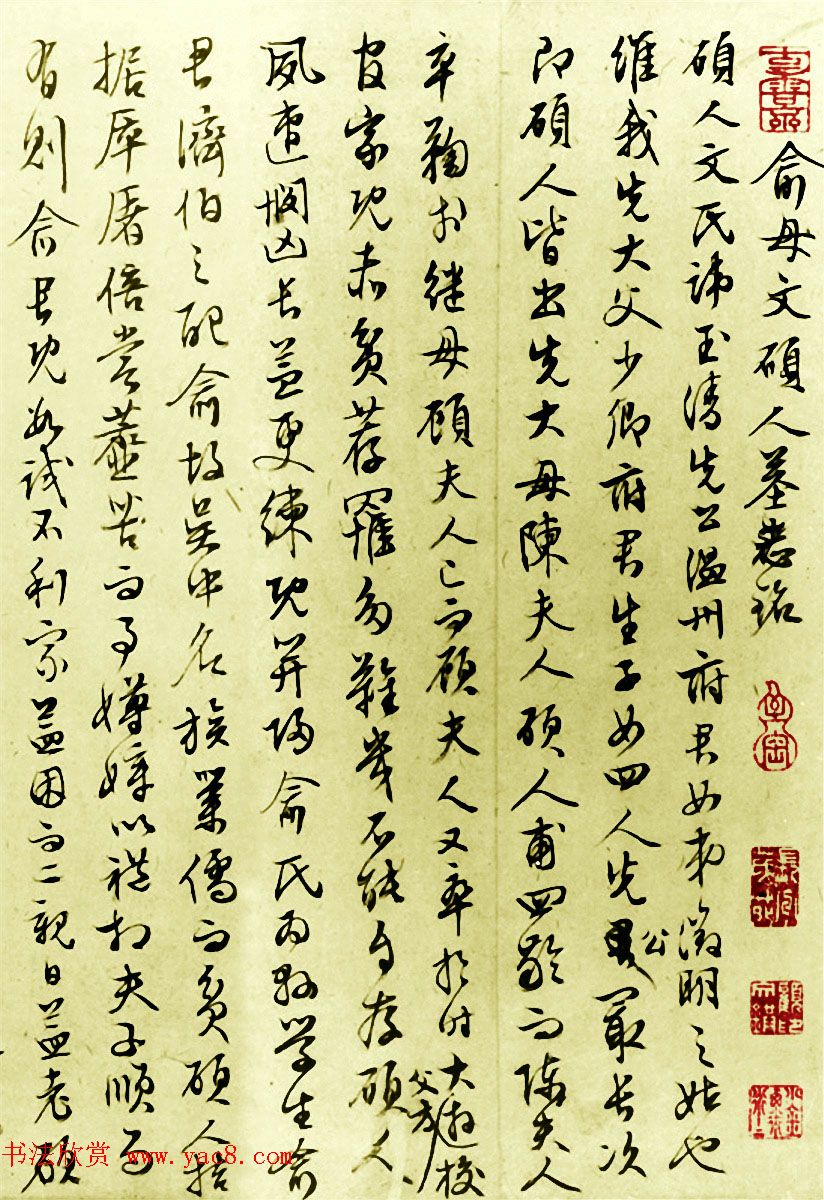 俞母文碩人墓誌銘
碩人文氏諱玉清先公溫州府君女弟徵明之姑也
維我先大父少卿府君生子女四人先公最長次
即碩人皆出先大母陳夫人碩人甫四齡而陳夫人
卒鞠於繼母顧夫人已而顧夫人又卒於時大父方遊校
官家既赤貧荐罹多難幾不能自存碩人
夙遭憫凶長益更練既笄歸俞氏為縣學生俞
君濟伯之配俞故吳中名族業儒而貧碩人拮
据倍嘗苦而事嫜以禮相夫子順而
有則俞君既數試不利家益困而二親日益老碩
书法欣赏 www.yac8.com